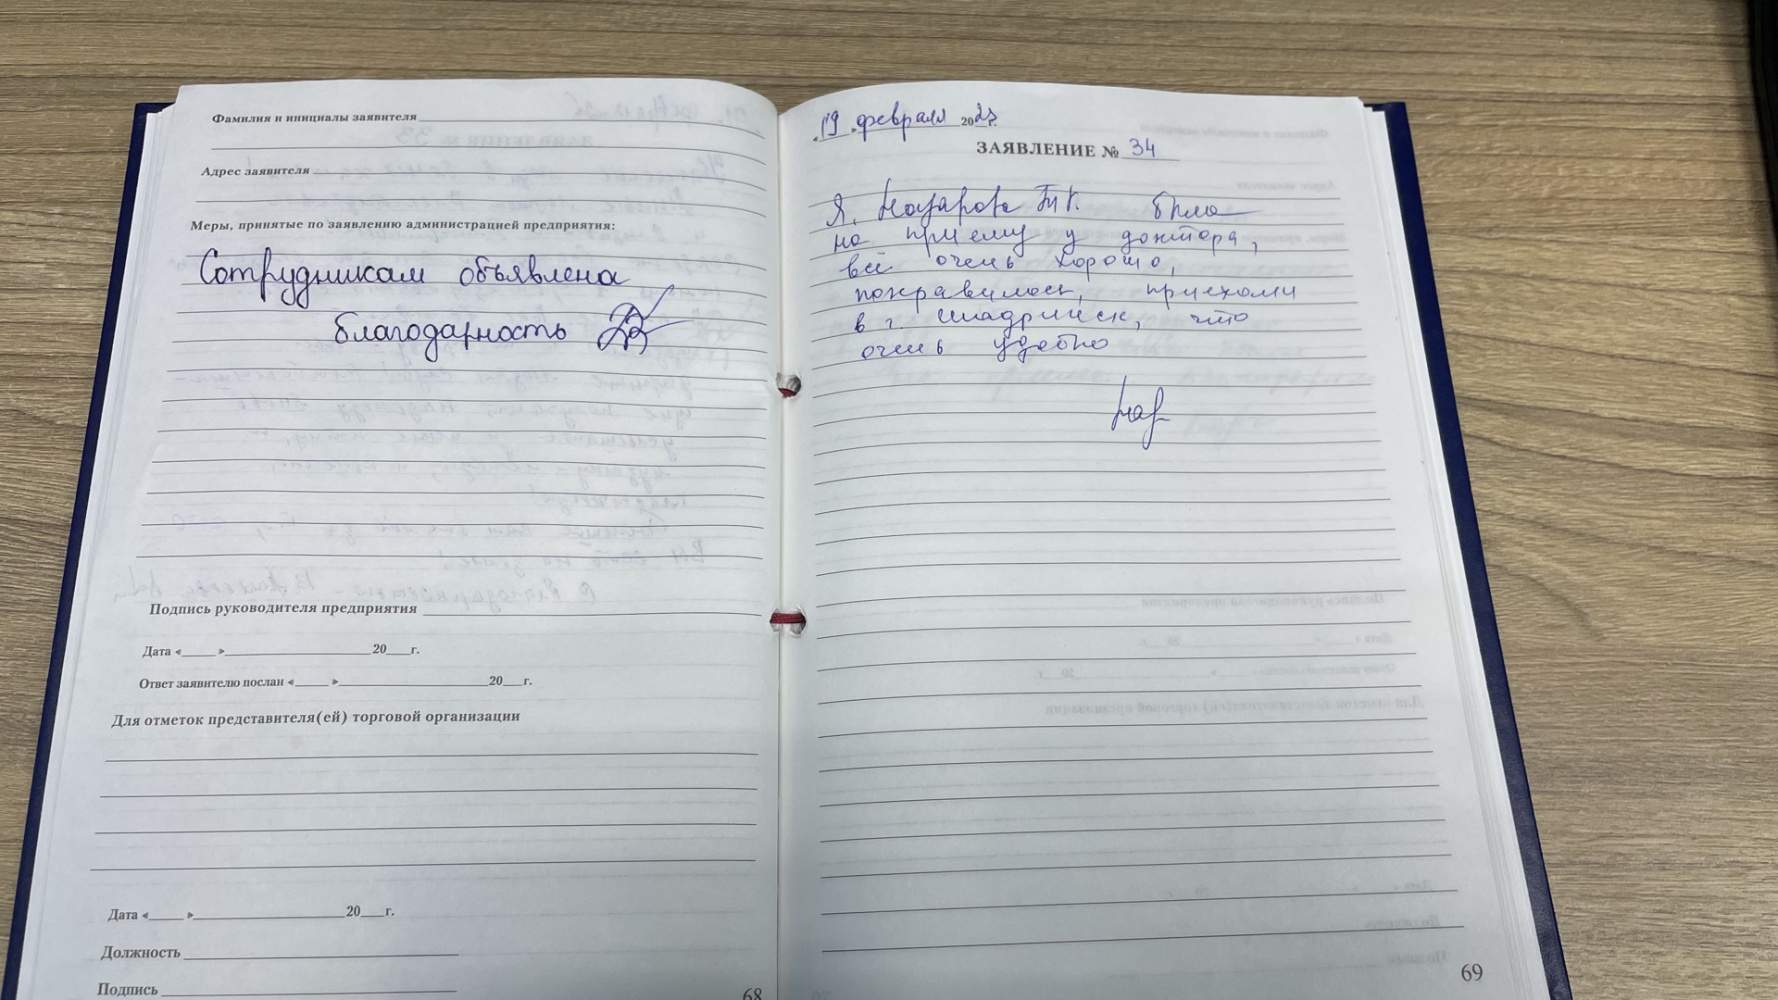 Фамилия и инициалы заявителя
Адрес заявителя
Меры, принятые по заявлению администрацией предприятия:
Сотрудникам объявлена
благодарность
Подпись руководителя предприятия
Дата « » 20 г.
Ответ заявителю послан « » 20 г.
Для отметок представителя(ей) торговой организации
Дата « » 20 г.
Должность
Подпись
68
19 февраля 2023г.
ЗАЯВЛЕНИЕ № 34
Я, Назарова Т.К. была
на приёму у доктора,
всё очень хорошо,
понравилось, приехали
в г. Шадринск, что
очень удобно
Наз
69